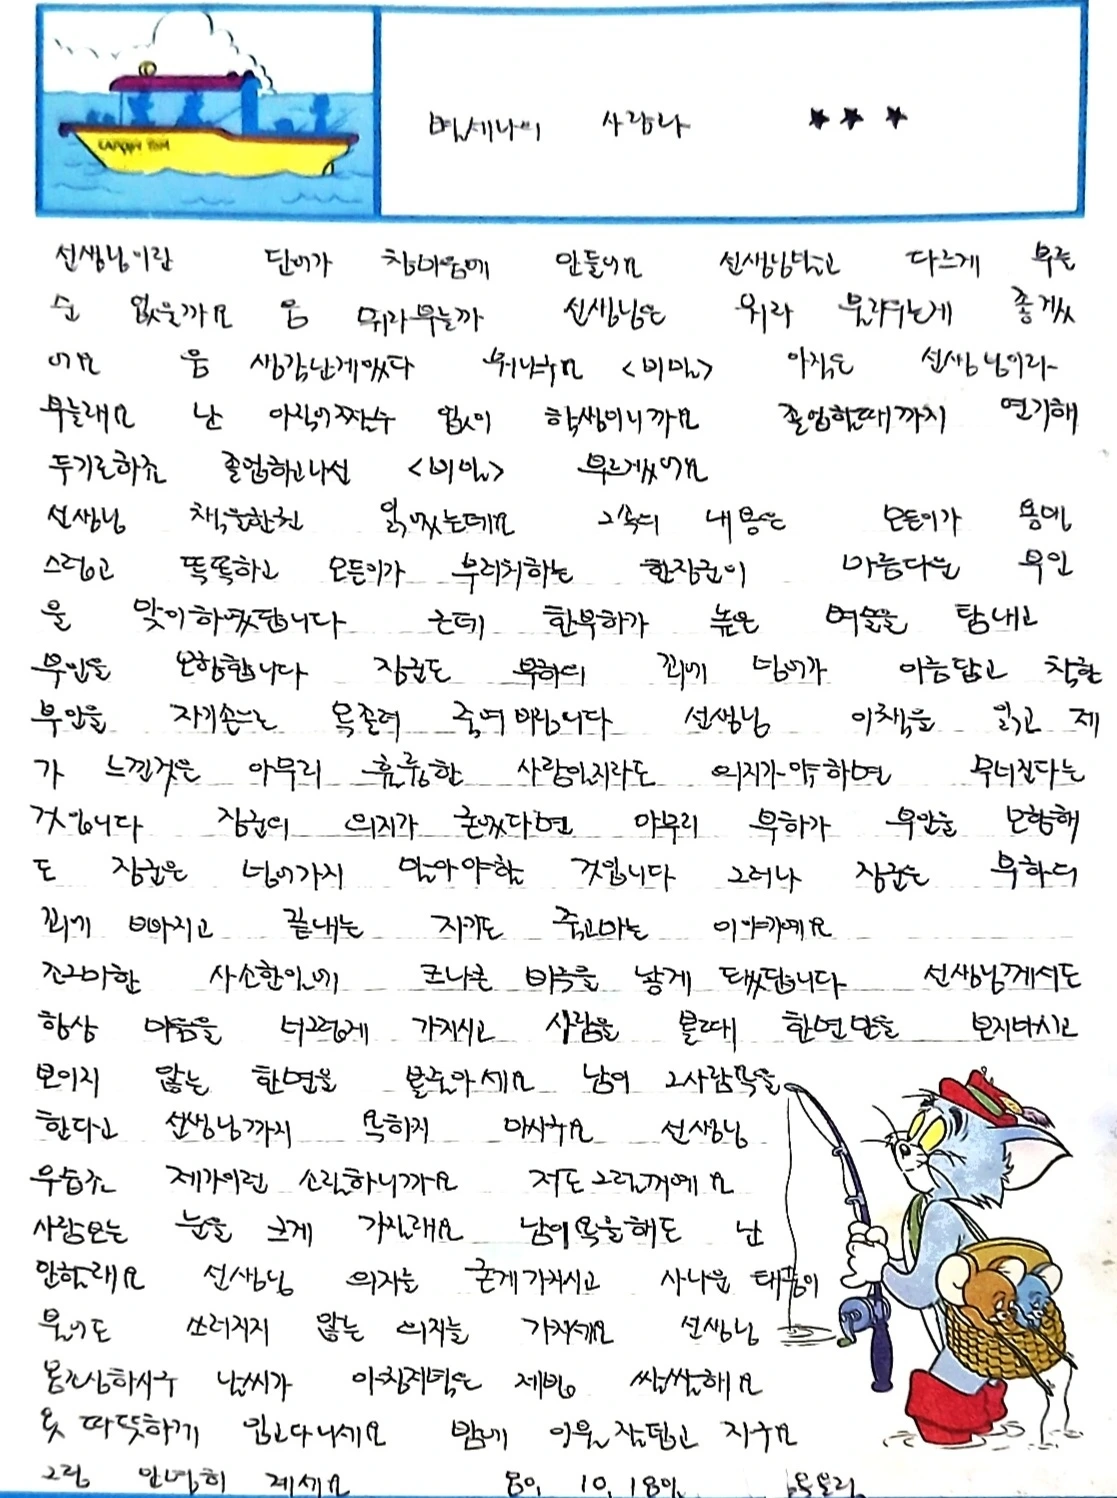 사람아 ★ ★ ★
선생님이란 단어가 참마음에 안들어요 선생님말고 다르게 부를
순 없을까요 음 뭐라부를까 선생님은 뭐라 불러주는게 좋겠
어요 음 생각난게있다 뭐냐구요 <비밀> 아직은 선생님이라
부를래요 난 아직어쩔수 없이 학생이니까요 졸업할때까지 연기해
두기로하죠 졸업하고나선 <비밀> 부르겠어요
선생님 책을한권 읽었는데요 그속의 내용은 모든이가 용매
스럽고 똑똑하고 모든이가 우러러하는 한장군이 아름다운 부인
을 맞이하였답니다 근데 한부하가 높은 벼슬을 탐내고
부인을 모함합니다 장군도 부하의 꾀에 넘어가 아름답고 착한
부인을 자기손으로 목졸려 죽여버립니다 선생님 이책을 읽고 제
가 느낀것은 아무리 훌륭한 사람일지라도 의지가약하면 무너진다는
것입니다 장군이 의지가 굳었다면 아무리 부하가 부인을 모함해
도 장군은 넘어가지 말아야할 것입니다 그러나 장군은 부하의
꾀에 빠지고 끝내는 자기도 죽고마는 이야기예요
조그마한 사소한일에 크나큰 비극을 낳게 됐답니다 선생님께서도
항상 마음을 너그럽게 가지시고 사람을 볼때 한면만을 보지마시고
보이지 않는 한면을 볼줄아세요 남이 그사람욕을
한다고 선생님까지 욕하지 마시구요 선생님
우습죠 제가이런 소릴하니까요 저도그럴꺼예요
사람보는 눈을 크게 가질래요 남이욕을해도 난
안할래요 선생님 의지를 굳게가지시고 사나운 태풍이
불어도 쓰러지지 않는 의지를 가지세요 선생님
몸조심하시구 날씨가 아침저녁은 제법 쌀쌀해요
옷 따뜻하게 입고다니세요 밤에 이불 잘덮고 자구요
그럼 안녕히 계세요 80. 10. 18일.